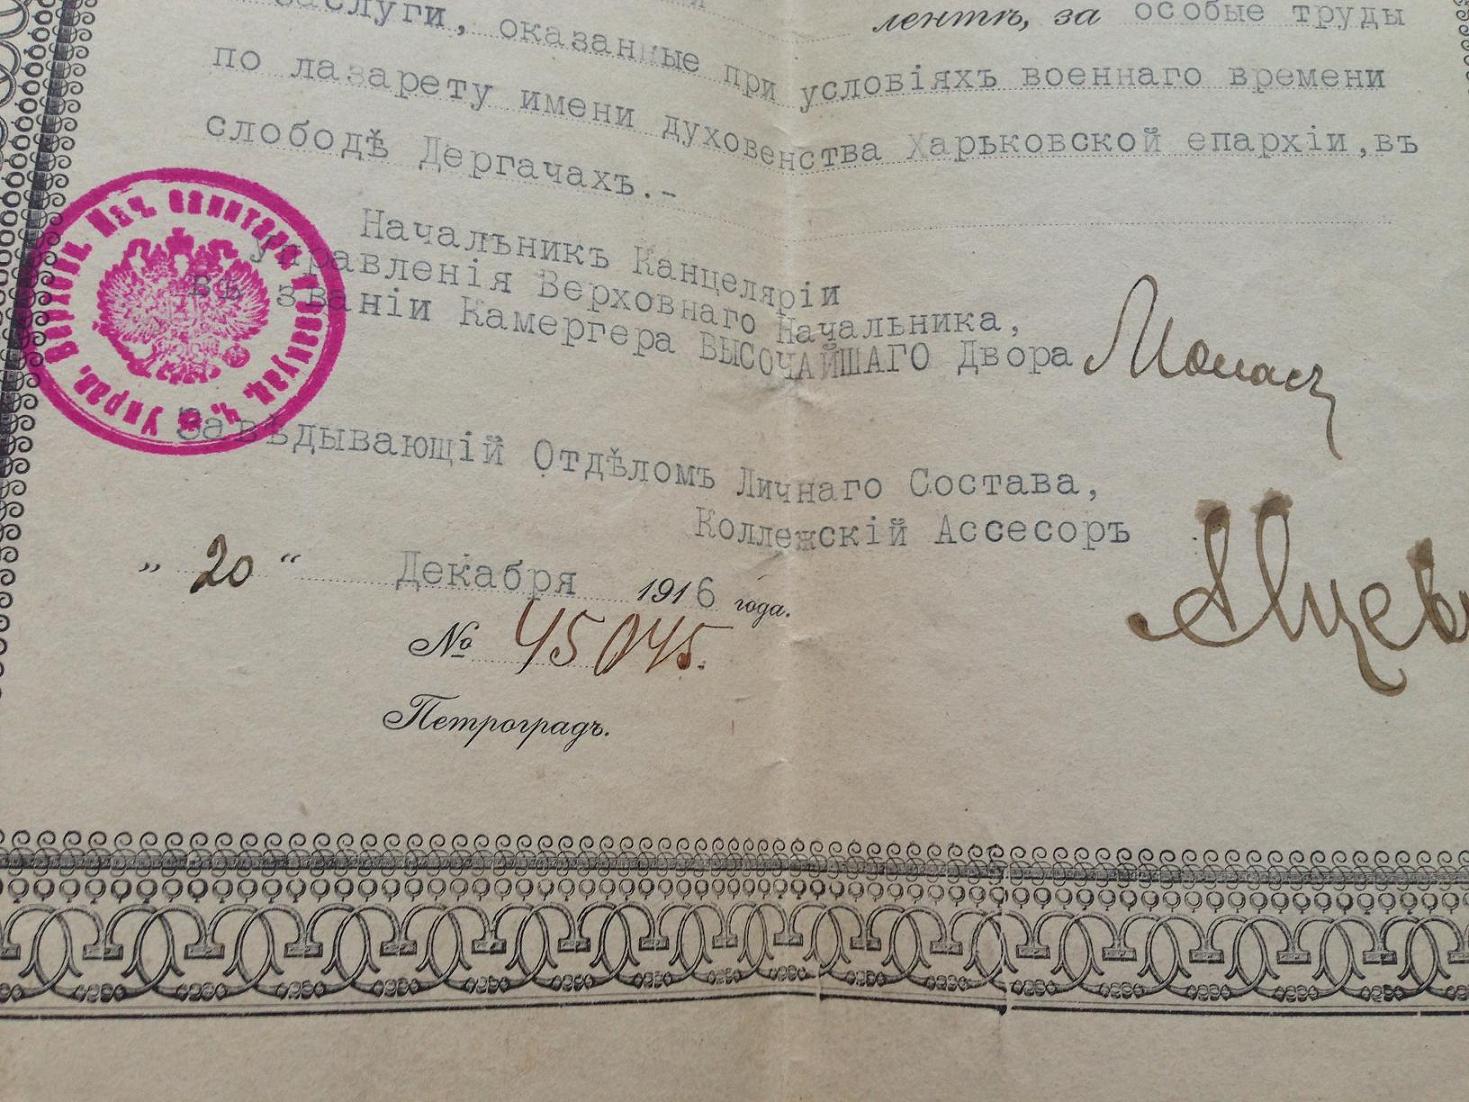 лентѣ, за особые труды
заслуги, оказанные при условіяхъ военнаго времени
по лазарету имени духовенства Харьковской епархіи, въ
слободѣ Дергачахъ.-
Начальникъ Канцеляріи
Управленія Верховнаго Начальника,
въ званіи Камергера ВЫСОЧАЙШАГО Двора
Завѣдывающій Отдѣломъ Личнаго Состава,
Коллежскій Ассесоръ
„ 20 “ Декабря 1916 года.
№ 45045.
Петроградъ.
Управ. Верховн. Нач. санитарн. и эвакуац. ч.